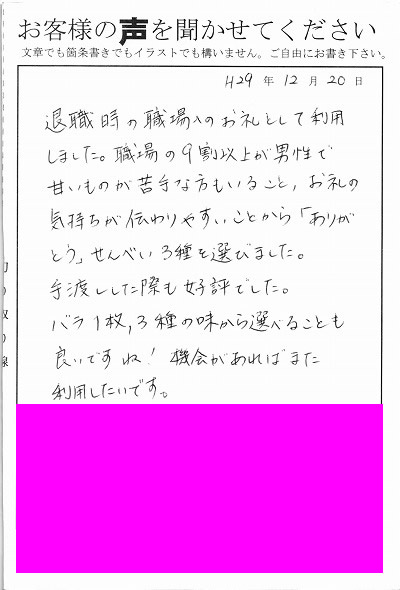 お客様の声を聞かせてください
文章でも箇条書きでもイラストでも構いません。ご自由にお書き下さい。
H29 年 12 月 20 日
退職時の職場へのお礼として利用
しました。職場の9割以上が男性で
甘いものが苦手な方もいること、お礼の
気持ちが伝わりやすいことから「ありが
とう」せんべい3種を選びました。
手渡しした際も好評でした。
バラ1枚,3種の味から選べることも
良いですね！ 機会があればまた
利用したいです。